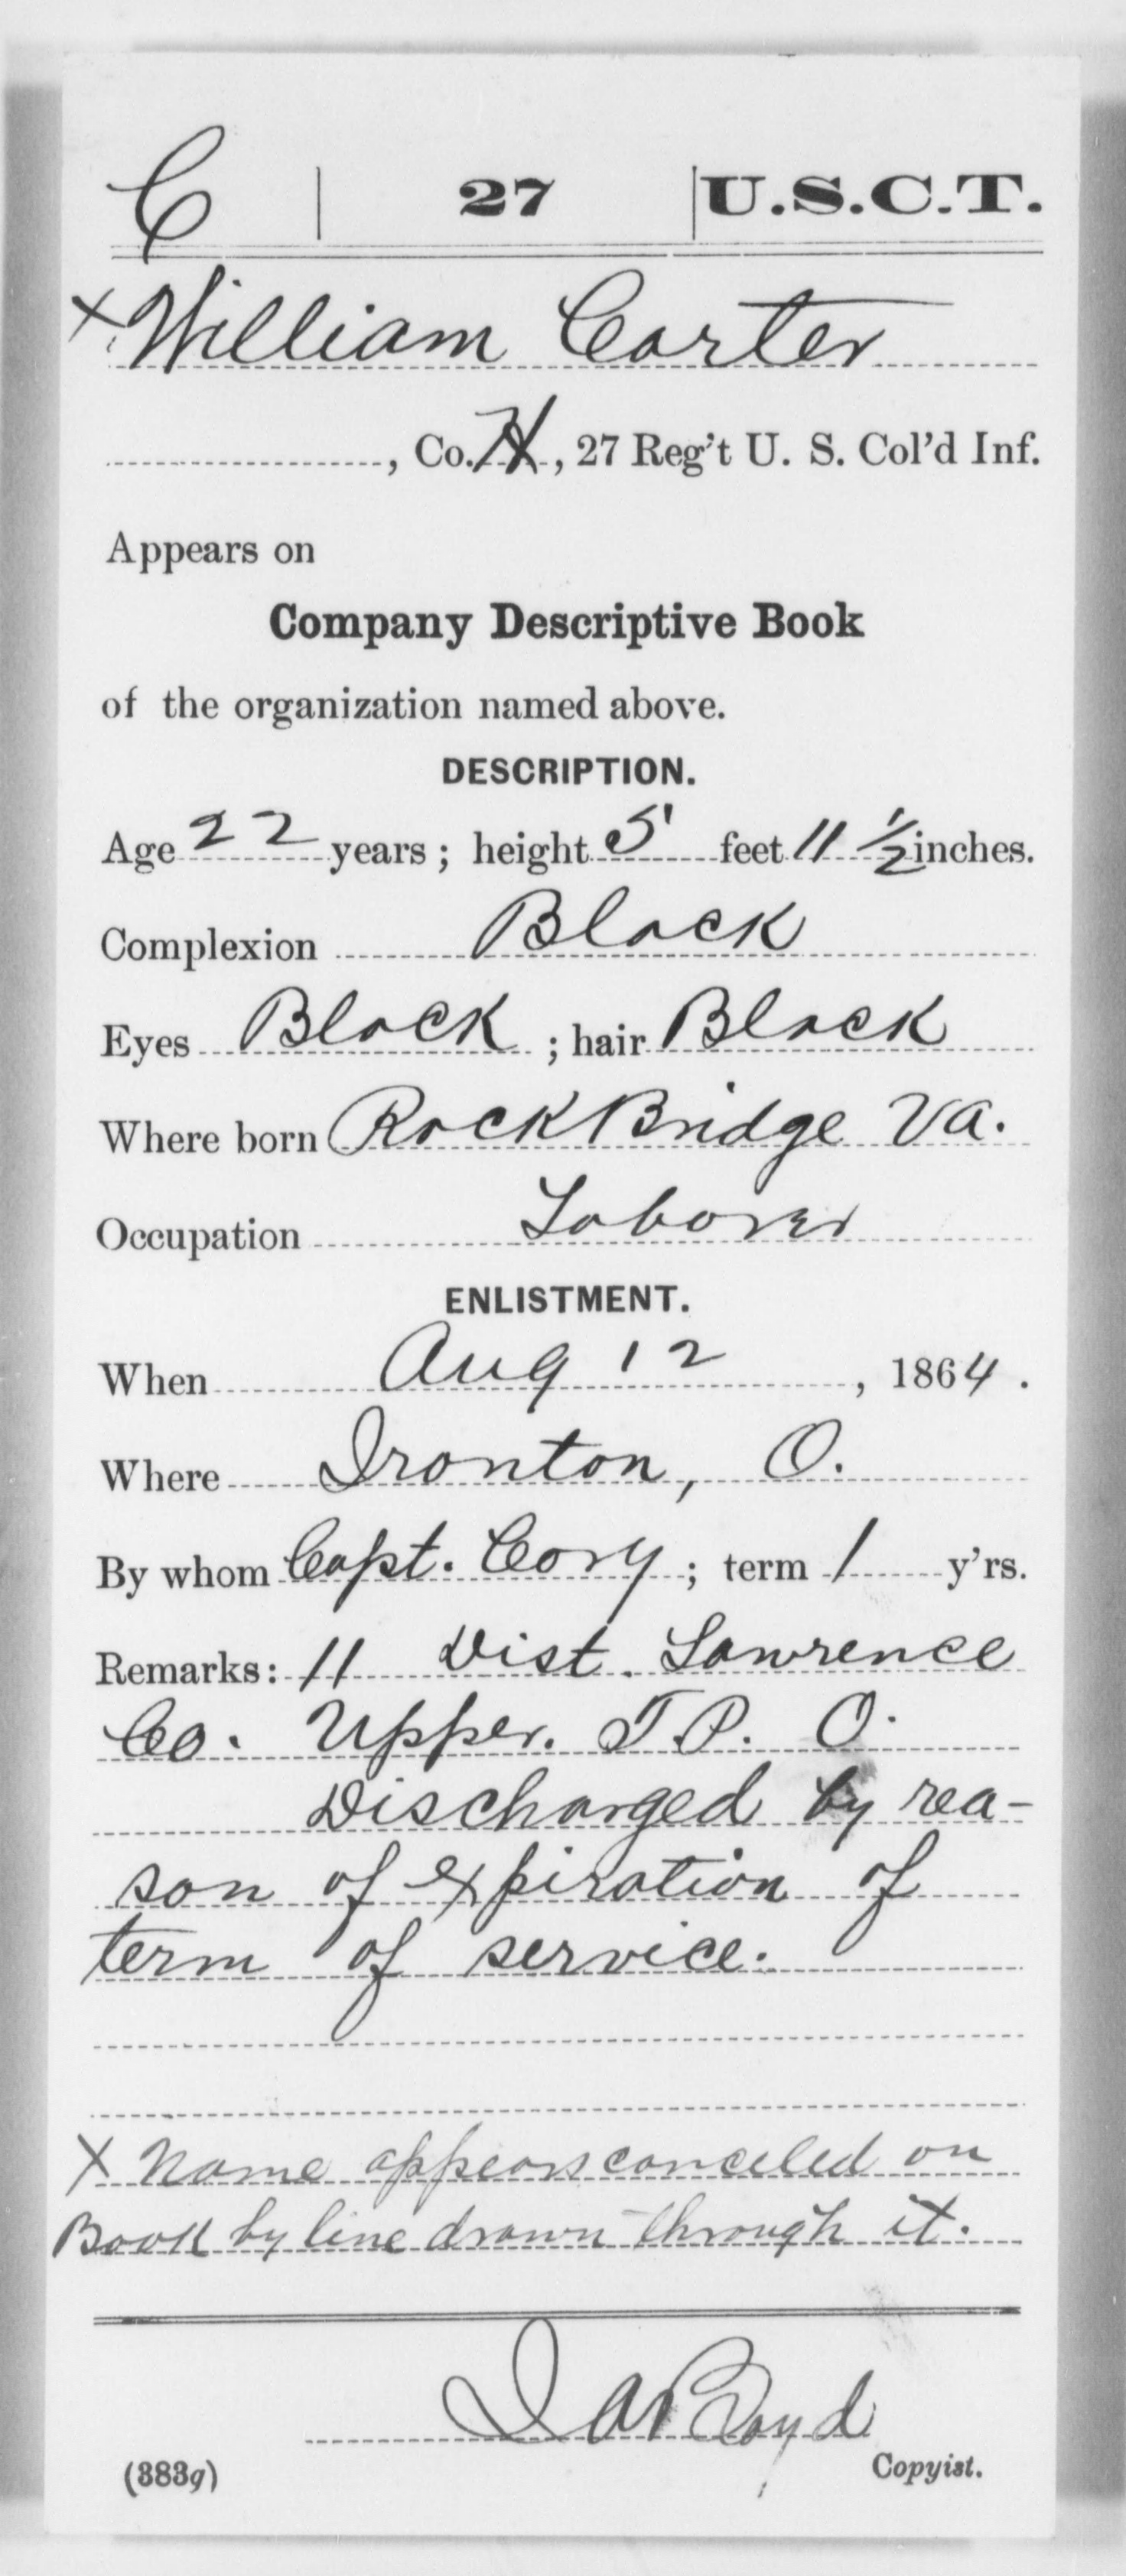 C | 27 | U.S.C.T.
x William Carter
, Co. H, 27 Reg't U. S. Col'd Inf.
Appears on
Company Descriptive Book
of the organization named above.
DESCRIPTION.
Age 22 years; height 5 feet 11 1/2 inches.
Complexion Black
Eyes Black; hair Black
Where born RockBridge Va.
Occupation Laborer
ENLISTMENT.
When Aug 12, 1864.
Where Ironton, O.
By whom Capt. Cory; term 1 y'rs.
Remarks: 11 Dist. Lawrence
Co. Upper. T.P. O.
Discharged by rea-
son of expiration of
term of service.
X Name appears canceled on
Book by line drawn through it.
Boyd
(383g) Copyist.